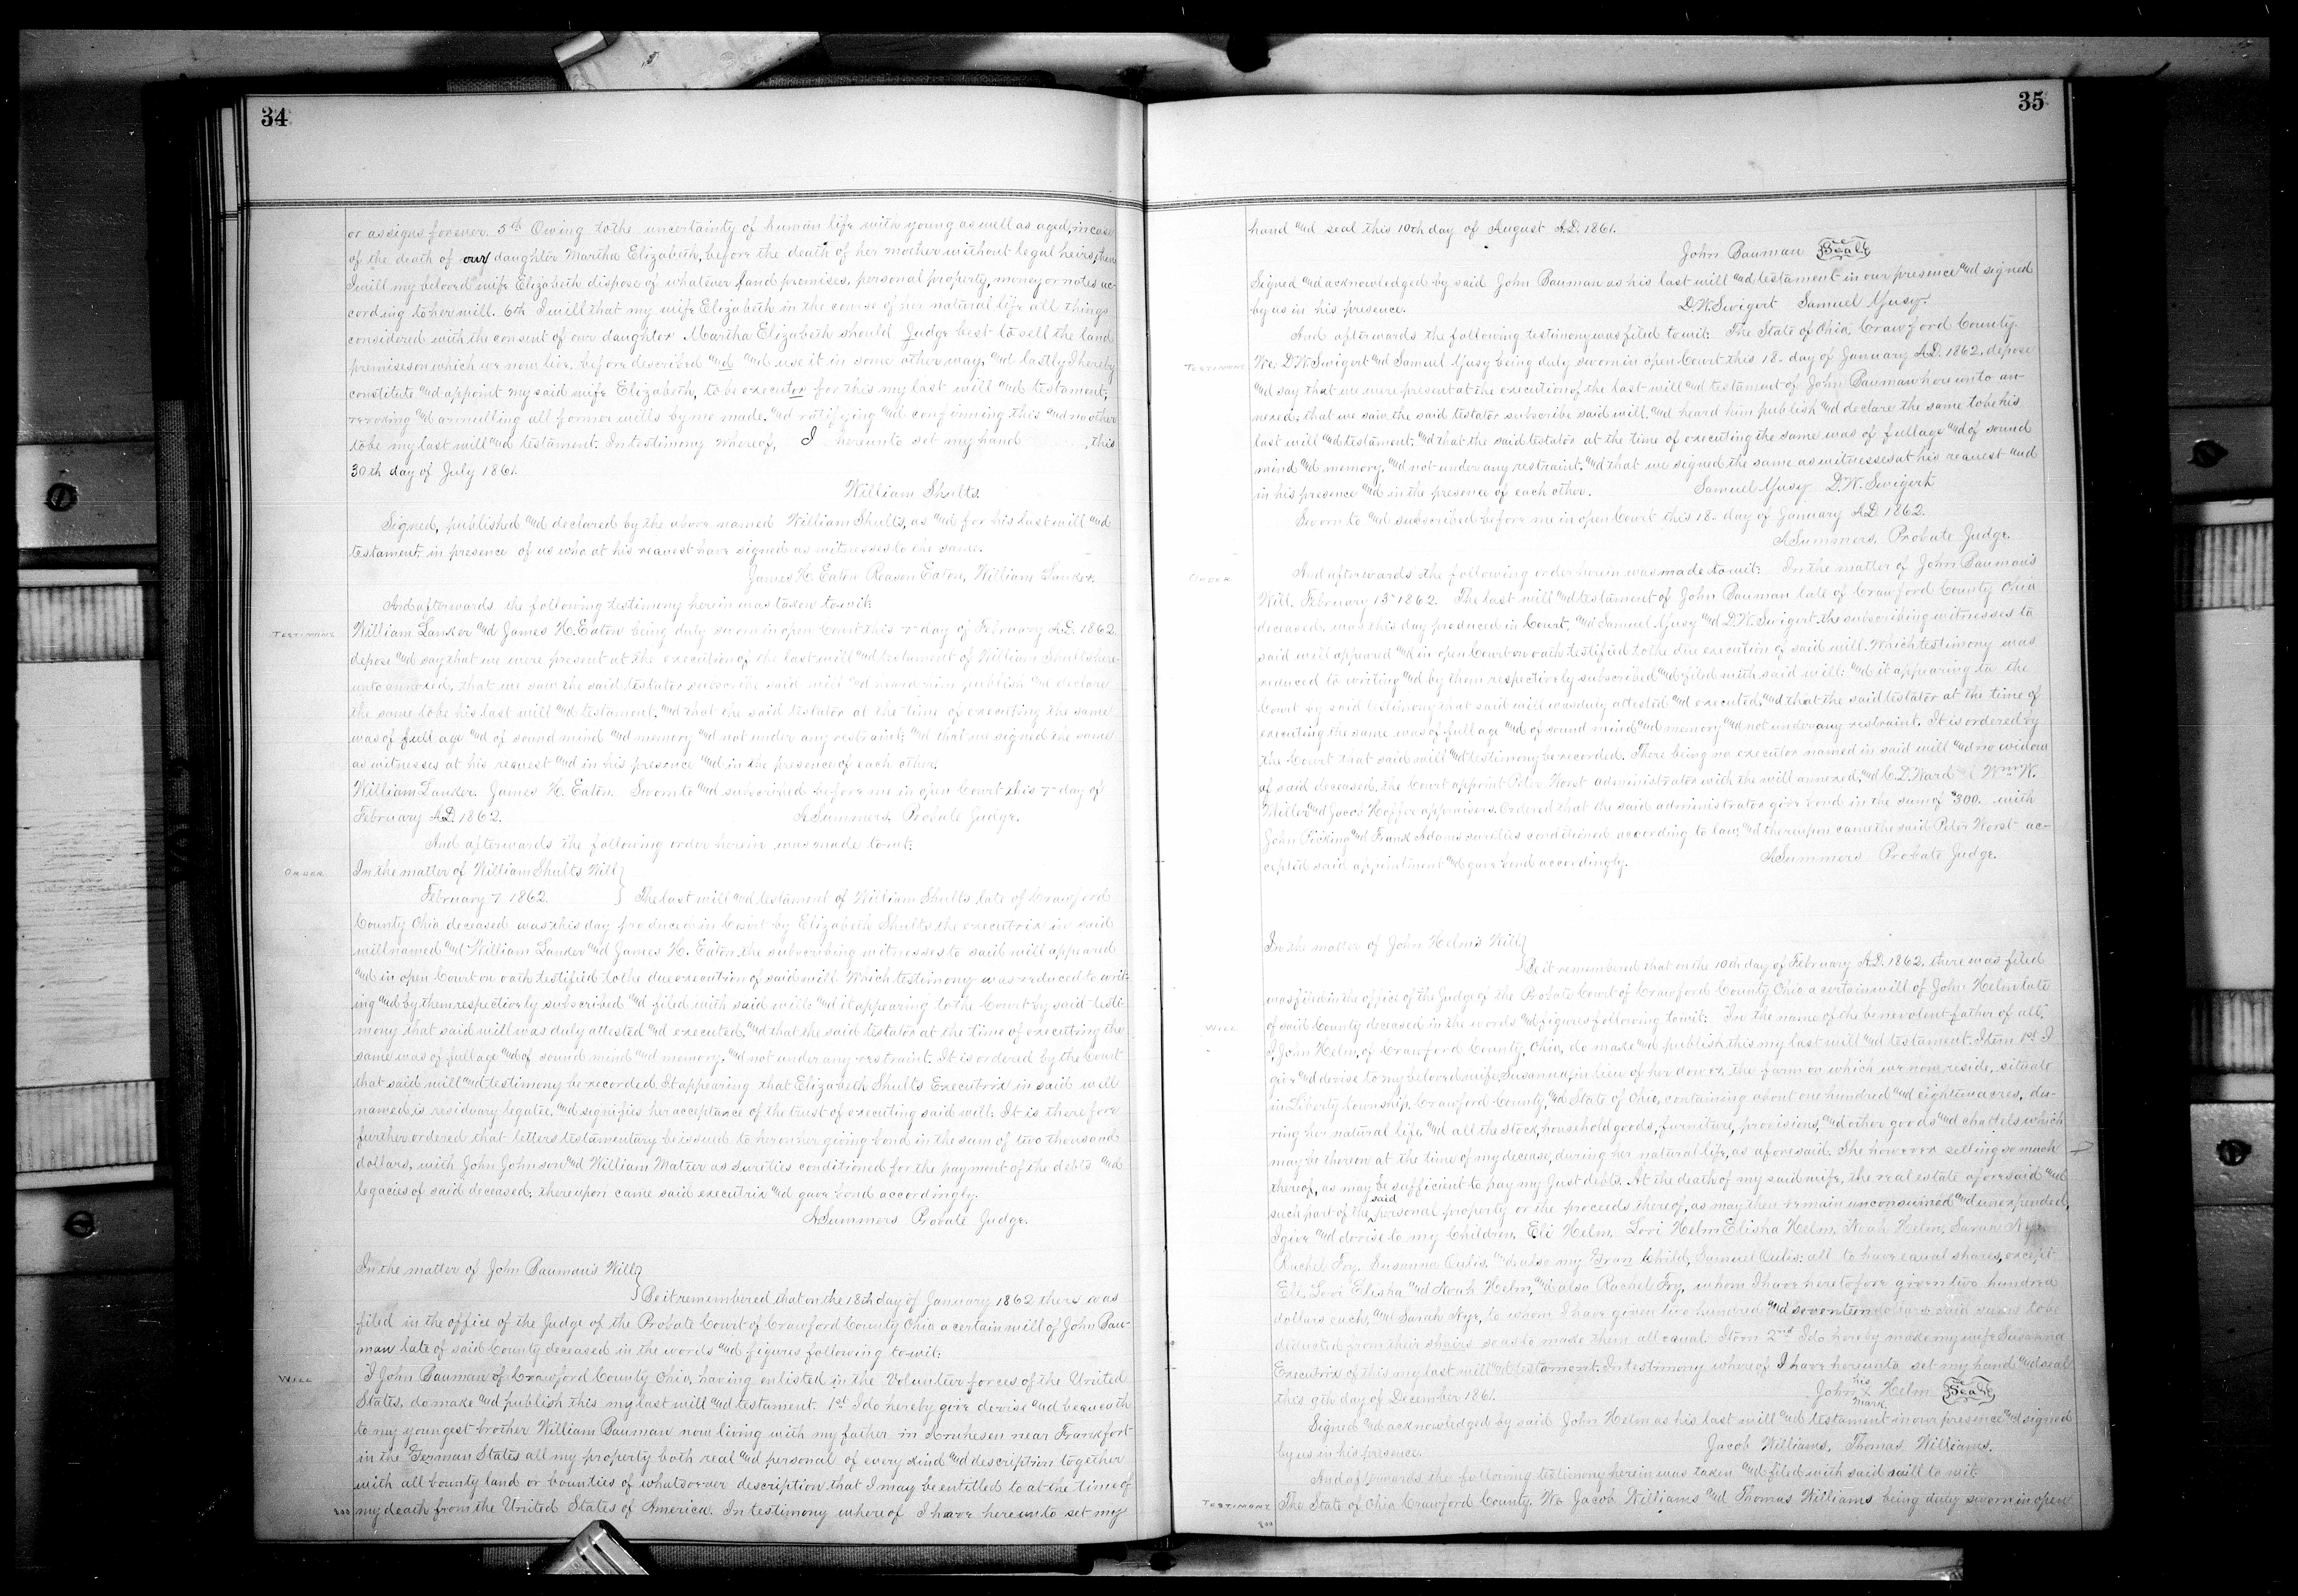 34
or assigns forever. 5th Owing to the uncertainty of human life with young as well as aged, in case
of the death of our daughter Martha Elizabeth, before the death of her mother without legal heirs, then
I will my beloved wife Elizabeth dispose of whatever land premises, personal property, money or notes ac-
cording to her will. 6th I will that my wife Elizabeth in the course of her natural life all things
considered with the consent of our daughter Martha Elizabeth should Judge best to sell the land
premises on which we now live, before described and and use it in some other way, and lastly I hereby
constitute and appoint my said wife Elizabeth, to be executor for this my last will and testament;
revoking and annulling all former wills by me made. and ratifying and confirming this and no other
to be my last will and testament. In testimony whereof, I hereunto set my hand , this
30th day of July 1861.
William Shults.
Signed, published and declared by the above named William Shults, as and for his last will and
testament, in presence of us who at his request have signed as witnesses to the same.
James H. Eaton Reason Eaton, William Lanker.
And afterwards the following testimony herein was taken towit:
TESTIMONY
William Lanker and James H. Eaton being duly sworn in open Court this 7 day of February A.D. 1862.
depose and say that we were present at the execution of the last will and testament of William Shults here-
unto annexed, that we saw the said testator subscribe said will and heard him publish and declare
the same to be his last will and testament, and that the said testator at the time of executing the same
was of full age and of sound mind and memory and not under any restraint; and that we signed the same
as witnesses at his request and in his presence and in the presence of each other.
William Lanker. James H. Eaton. Sworn to and subscribed before me in open Court this 7 day of
February A.D. 1862. A. Summers, Probate Judge.
And afterwards the following order herein was made towit:
ORDER
In the matter of William Shults Will
February 7 1862. The last will and testament of William Shults late of Crawford
County Ohio deceased was this day produced in Court by Elizabeth Shults the executrix in said
will named and William Lanker and James H. Eaton the subscribing witnesses to said will appeared
and in open Court on oath testified to the due execution of said will. Which testimony was reduced to writ-
ing and by them respectively subscribed and filed with said will: and it appearing to the Court by said testi-
mony that said will was duly attested and executed, and that the said testator at the time of executing the
same was of full age and of sound mind and memory, and not under any restraint. It is ordered by the Court
that said will and testimony be recorded. It appearing that Elizabeth Shults Executrix in said will
named is residuary legatee, and signifies her acceptance of the trust of executing said will: It is therefore
further ordered that letters testamentary be issued to her on her giving bond in the sum of two thousand
dollars, with John Johnson and William Matzer as sureties conditioned for the payment of the debts and
legacies of said deceased: thereupon came said executrix and gave bond accordingly.
A. Summers Probate Judge.
In the matter of John Bauman's Will
Be it remembered that on the 18th day of January 1862 there was
filed in the office of the Judge of the Probate Court of Crawford County Ohio a certain will of John Bau-
man late of said County deceased in the words and figures following towit:
WILL
I John Bauman of Crawford County Ohio, having enlisted in the Volunteer forces of the United
States, do make and publish this my last will and testament. 1st I do hereby give devise and bequeath
to my youngest brother William Bauman now living with my father in Kruhesen near Frankfort
in the German States all my property both real and personal of every kind and description together
with all bounty land or bounties of whatsoever description that I may be entitled to at the time of
800 my death from the United States of America. In testimony whereof I have hereunto set my
35
hand and seal this 10th day of August A.D. 1861.
John Bauman Seal
Signed and acknowledged by said John Bauman as his last will and testament in our presence and signed
by us in his presence. D.W. Swigert Samuel Yusy.
And afterwards the following testimony was filed towit: The State of Ohio, Crawford County.
TESTIMONY
We, D.W. Swigert and Samuel Yusy being duly sworn in open Court this 18. day of January A.D. 1862, depose
and say that we were present at the execution of the last will and testament of John Bauman hereunto an-
nexed, that we saw the said testator subscribe said will, and heard him publish and declare the same to be his
last will and testament, and that the said testator at the time of executing the same was of full age and of sound
mind and memory, and not under any restraint, and that we signed the same as witnesses at his request and
in his presence and in the presence of each other. Samuel Yusy D.W. Swigert
Sworn to and subscribed before me in open Court this 18. day of January A.D. 1862.
A Summers, Probate Judge.
ORDER
And afterwards the following order herein was made towit: In the matter of John Bauman's
Will. February 15 1862. The last will and testament of John Bauman late of Crawford County Ohio
deceased, was this day produced in Court, and Samuel Yusy and D.W. Swigert the subscribing witnesses to
said will appeared and in open Court on oath testified to the due execution of said will. Which testimony was
reduced to writing and by them respectively subscribed and filed with said will: and it appearing to the
Court by said testimony that said will was duly attested and executed, and that the said testator at the time of
executing the same was of full age and of sound mind and memory and not under any restraint. It is ordered by
the Court that said will and testimony be recorded. There being no executor named in said will and no widow
of said deceased, the Court appoint Peter Worst administrator with the will annexed, and C.D. Ward Wm W.
Miller and Jacob Hoffer appraisers. Ordered that the said administrator give bond in the sum of $300. with
John Picking and Frank Adams sureties conditioned according to law, and thereupon came the said Peter Worst ac-
cepted said appointment and gave bond accordingly. A Summers Probate Judge.
In the matter of John Helm's Will
Be it remembered that on the 10th day of February A.D. 1862, there was filed
was filed in the office of the Judge of the Probate Court of Crawford County Ohio a certain will of John Helm late
WILL
of said County deceased in the words and figures following towit: In the name of the benevolent father of all.
I, John Helm, of Crawford County, Ohio, do make and publish this my last will and testament. Item 1st I
give and devise to my beloved wife, Susanna, in lieu of her dower, the farm on which we now reside, situate
in Liberty township, Crawford County, and State of Ohio, containing about one hundred and eighteen acres, du-
ring her natural life and all the stock, household goods, furniture, provisions, and other goods and chattels which
may be thereon at the time of my decease, during her natural life, as aforesaid. She however selling so much
thereof, as may be sufficient to pay my Just debts. At the death of my said wife, the real estate aforesaid and
such part of the said personal property or the proceeds thereof, as may then remain unconsumed and unexpended,
I give and devise to my Children, Eli Helm, Levi Helm Elisha Helm, Noah Helm, Sarah Nye
Rachel Fry, Susanna Culis, and also my Gran Child, Samuel Culis; all to have equal shares, except
Eli, Levi Elisha and Noah Helm, and also Rachel Fry, whom I have heretofore given two hundred
dollars each, and Sarah Nye, to whom I have given two hundred and seventeen dollars said sums to be
deducted from their shairs so as to make them all equal. Item 2nd I do hereby make my wife Susanna
Executrix of this my last will and testament. In testimony whereof I have hereunto set my hand and seal
this 9th day of December 1861. John his x mark Helm Seal
Signed and acknowledged by said John Helm as his last will and testament in our presence and signed
by us in his presence. Jacob Williams, Thomas Williams.
And afterwards the following testimony herein was taken and filed with said will to wit:
TESTIMONY
The State of Ohio Crawford County. We Jacob Williams and Thomas Williams being duly sworn in open
800